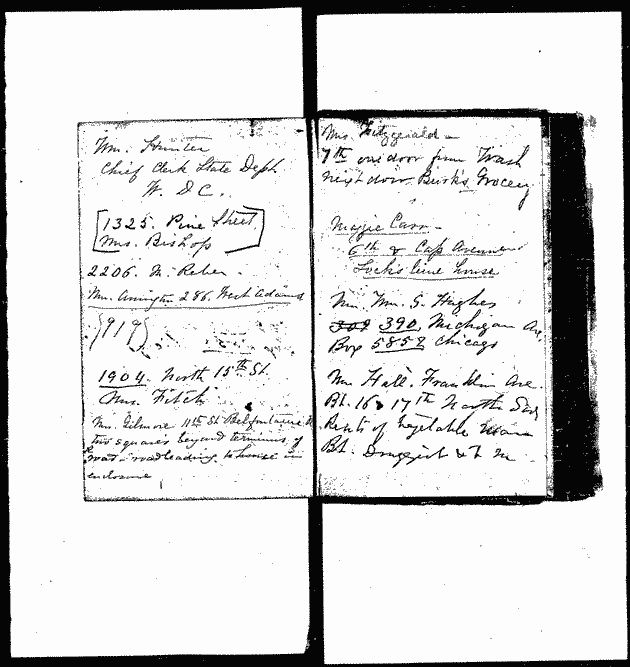 Wm. Hunter
Chief Clerk State Dept.
W. D C.
[1325. Pine Street.
Mrs. Bishop]
2206. M. Reber.
Mrs. Arrington 286. West Adams
{919}
1904. North 15th St.
Mrs. Fitch
Mrs. Gilmore 11th St Belfontaine
two squares beyond terminus of
road - road leading to house in
enclosure
Mrs. Fitzgerald -
7th one door from Wash
next door Burk's Grocery
Maggie Carr -
6th & Cass Avenue
Lock's lime house
Mr. Wm. S. Hughes
309 390. Michigan Av.
Box 5852 Chicago
Mrs Hall. Franklin Ave
Bt. 16 & 17th North Side
Rents of Vegetable Man
Bt. Druggist &